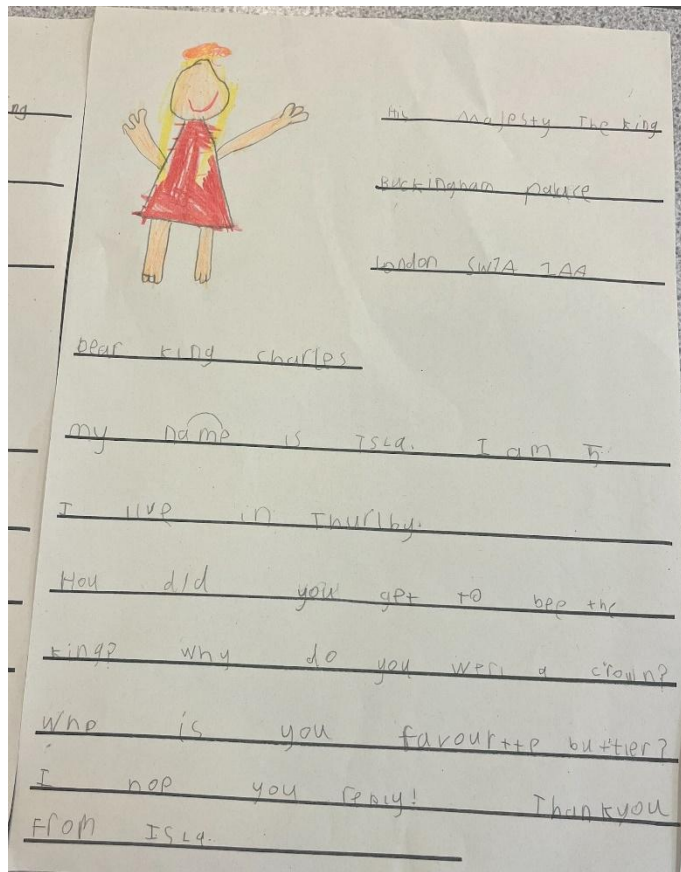 ng
His Majesty The King
Buckingham palace
London SW1A 1AA
Dear King Charles
my name is Isla. I am 5
I live in Thurlby.
How did you get to bee the
king? why do you wer a crown?
Who is you favourtte buttier?
I hop you reply! Thankyou
From Isla.